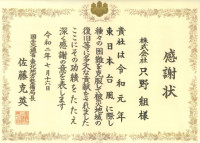 感謝状
株式会社
只野組様
貴社は令和元年
東日本台風に際し
種々の困難を克服し被災地域の
復旧等に多大な貢献をされました
ここにその功績をたたえ
深く感謝の意を表します
令和二年七月十六日
国土交通省東北地方整備局長
佐藤克英